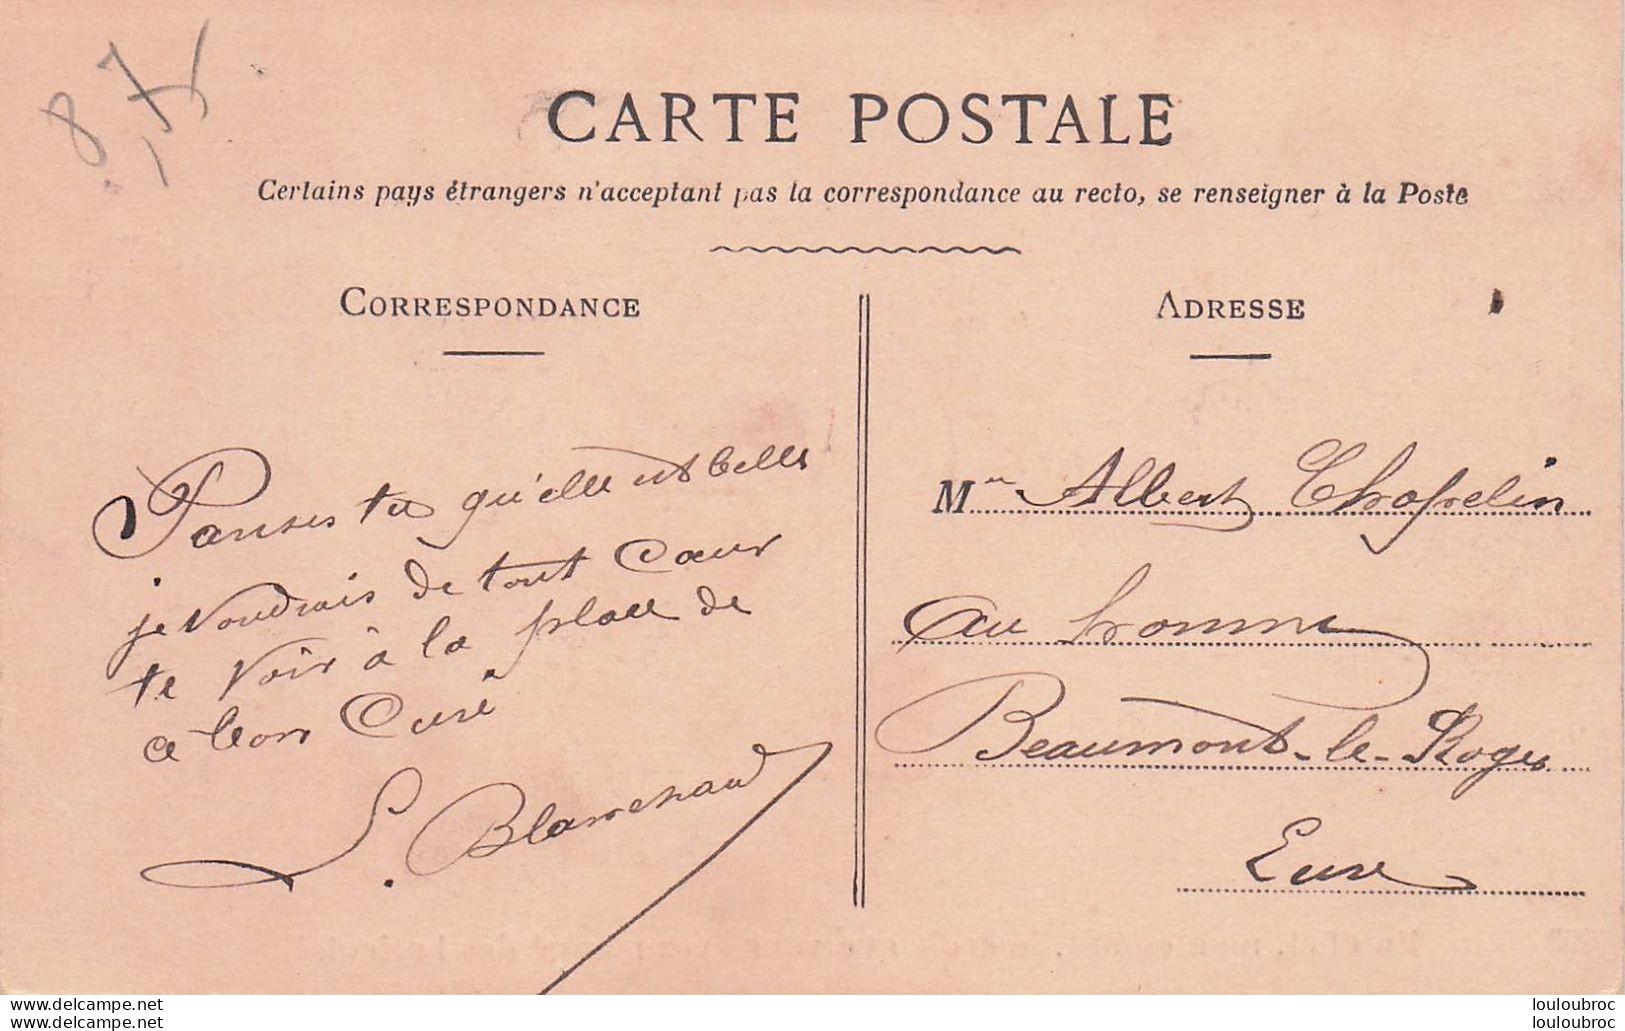 87
CARTE POSTALE
Certains pays étrangers n'acceptant pas la correspondance au recto, se renseigner à la Poste
CORRESPONDANCE
Panses tu qu'elle est belle
je voudrais de tout cœur
te voir à la place de
ce bon Curé
ADRESSE
M Albert
au homme
Beaumont-le-Roger
Eure
www.delcampe.net
www.delcampe.net
louloubroc
louloubroc